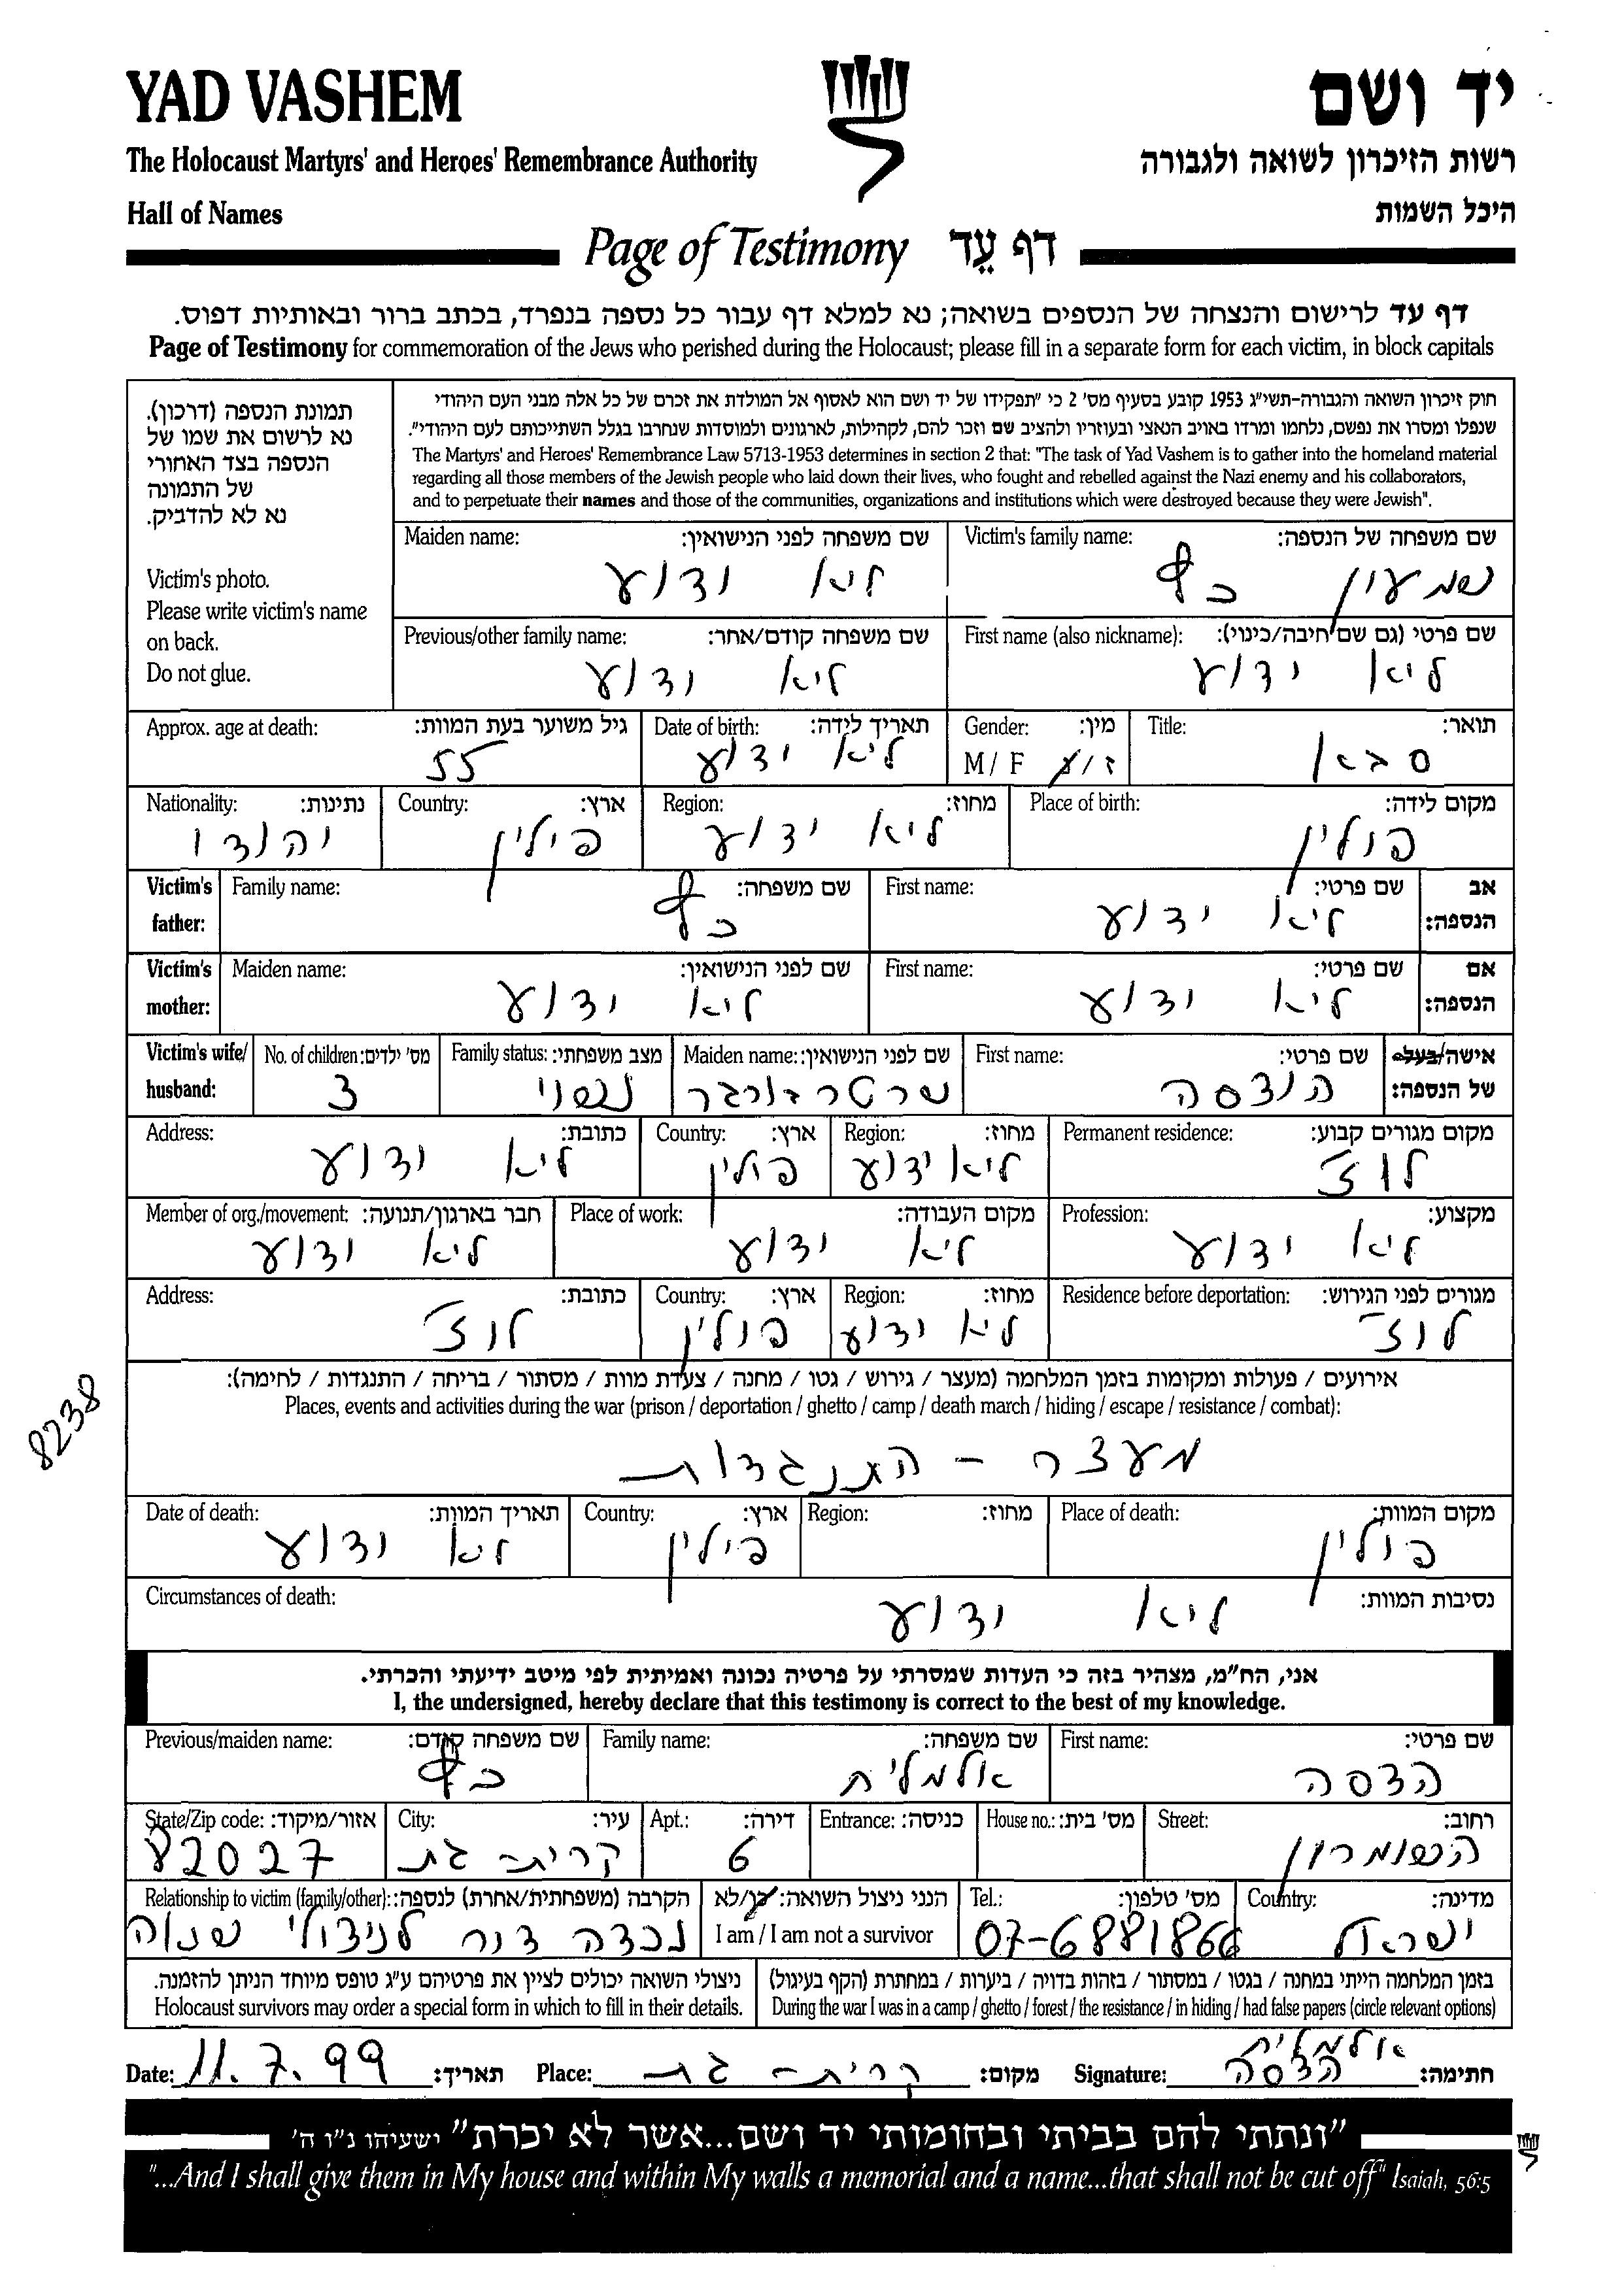 YAD VASHEM
יד ושם
The Holocaust Martyrs' and Heroes' Remembrance Authority
רשות הזיכרון לשואה ולגבורה
Hall of Names
היכל השמות
Page of Testimony דף עֵד
דף עד לרישום והנצחה של הנספים בשואה; נא למלא דף עבור כל נספה בנפרד, בכתב ברור ובאותיות דפוס.
Page of Testimony for commemoration of the Jews who perished during the Holocaust; please fill in a separate form for each victim, in block capitals
תמונת הנספה (דרכון).
נא לרשום את שמו של
הנספה בצד האחורי
של התמונה
נא לא להדביק.
Victim's photo.
Please write victim's name
on back.
Do not glue.
חוק זיכרון השואה והגבורה-תשי"ג 1953 קובע בסעיף מס' 2 כי "תפקידו של יד ושם הוא לאסוף אל המולדת את זכרם של כל אלה מבני העם היהודי
שנפלו ומסרו את נפשם, נלחמו ומרדו באויב הנאצי ובעוזריו ולהציב שם וזכר להם, לקהילות, לארגונים ולמוסדות שנחרבו בגלל השתייכותם לעם היהודי".
The Martyrs' and Heroes' Remembrance Law 5713-1953 determines in section 2 that: "The task of Yad Vashem is to gather into the homeland material
regarding all those members of the Jewish people who laid down their lives, who fought and rebelled against the Nazi enemy and his collaborators,
and to perpetuate their names and those of the communities, organizations and institutions which were destroyed because they were Jewish".
Victim's family name: שם משפחה של הנספה:
שמעון כף
Maiden name: שם משפחה לפני הנישואין:
לא ידוע
First name (also nickname): שם פרטי (גם שם חיבה/כינוי):
לא ידוע
Previous/other family name: שם משפחה קודם/אחר:
לא ידוע
Title: תואר:
סבא
Gender: מין:
M / F ז / נ
Date of birth: תאריך לידה:
לא ידוע
Approx. age at death: גיל משוער בעת המוות:
55
Place of birth: מקום לידה:
פולין
Region: מחוז:
לא ידוע
Country: ארץ:
פולין
Nationality: נתינות:
יהודי
Victim's father: אב הנספה:
First name: שם פרטי:
לא ידוע
Family name: שם משפחה:
כף
Victim's mother: אם הנספה:
First name: שם פרטי:
לא ידוע
Maiden name: שם לפני הנישואין:
לא ידוע
Victim's wife/ husband: אישה/בעלה של הנספה:
First name: שם פרטי:
הנדסה
Maiden name: שם לפני הנישואין:
Family status: מצב משפחתי:
נשוי
No. of children: מס' ילדים:
3
Permanent residence: מקום מגורים קבוע:
לודז'
Region: מחוז:
לא ידוע
Country: ארץ:
פולין
Address: כתובת:
לא ידוע
Profession: מקצוע:
לא ידוע
Place of work: מקום העבודה:
לא ידוע
Member of org./movement: חבר בארגון/תנועה:
לא ידוע
Residence before deportation: מגורים לפני הגירוש:
לודז'
Region: מחוז:
לא ידוע
Country: ארץ:
פולין
Address: כתובת:
לודז'
8238
אירועים / פעולות ומקומות בזמן המלחמה (מעצר / גירוש / גטו / מחנה / צעדת מוות / מסתור / בריחה / התנגדות / לחימה):
Places, events and activities during the war (prison / deportation / ghetto / camp / death march / hiding / escape / resistance / combat):
מעצר - התנגדות
Place of death: מקום המוות:
פולין
Region: מחוז:
Country: ארץ:
פולין
Date of death: תאריך המוות:
לא ידוע
Circumstances of death: נסיבות המוות:
לא ידוע
אני, הח"מ, מצהיר בזה כי העדות שמסרתי על פרטיה נכונה ואמיתית לפי מיטב ידיעתי והכרתי.
I, the undersigned, hereby declare that this testimony is correct to the best of my knowledge.
First name: שם פרטי:
הדסה
Family name: שם משפחה:
אלמליח
Previous/maiden name: שם משפחה קודם:
כף
Street: רחוב:
השומרון
House no.: מס' בית:
Entrance: כניסה:
Apt.: דירה:
6
City: עיר:
קרית-גת
State/Zip code: אזור/מיקוד:
82027
Country: מדינה:
ישראל
Tel.: מס' טלפון:
07-6881866
הנני ניצול השואה: כן/לא
I am / I am not a survivor
Relationship to victim (family/other): הקרבה (משפחתית/אחרת) לנספה:
נכדה דור לניצולי שואה
בזמן המלחמה הייתי במחנה / בגטו / במסתור / בזהות בדויה / ביערות / במחתרת (הקף בעיגול)
During the war I was in a camp / ghetto / forest / the resistance / in hiding / had false papers (circle relevant options)
ניצולי השואה יכולים לציין את פרטיהם ע"ג טופס מיוחד הניתן להזמנה.
Holocaust survivors may order a special form in which to fill in their details.
Date: 11.7.99 תאריך: Place: קרית-גת מקום: Signature: אלמליח הדסה חתימה:
"ונתתי להם בביתי ובחומותי יד ושם...אשר לא יכרת" ישעיהו נ"ו ה'
"...And I shall give them in My house and within My walls a memorial and a name...that shall not be cut off" Isaiah, 56:5